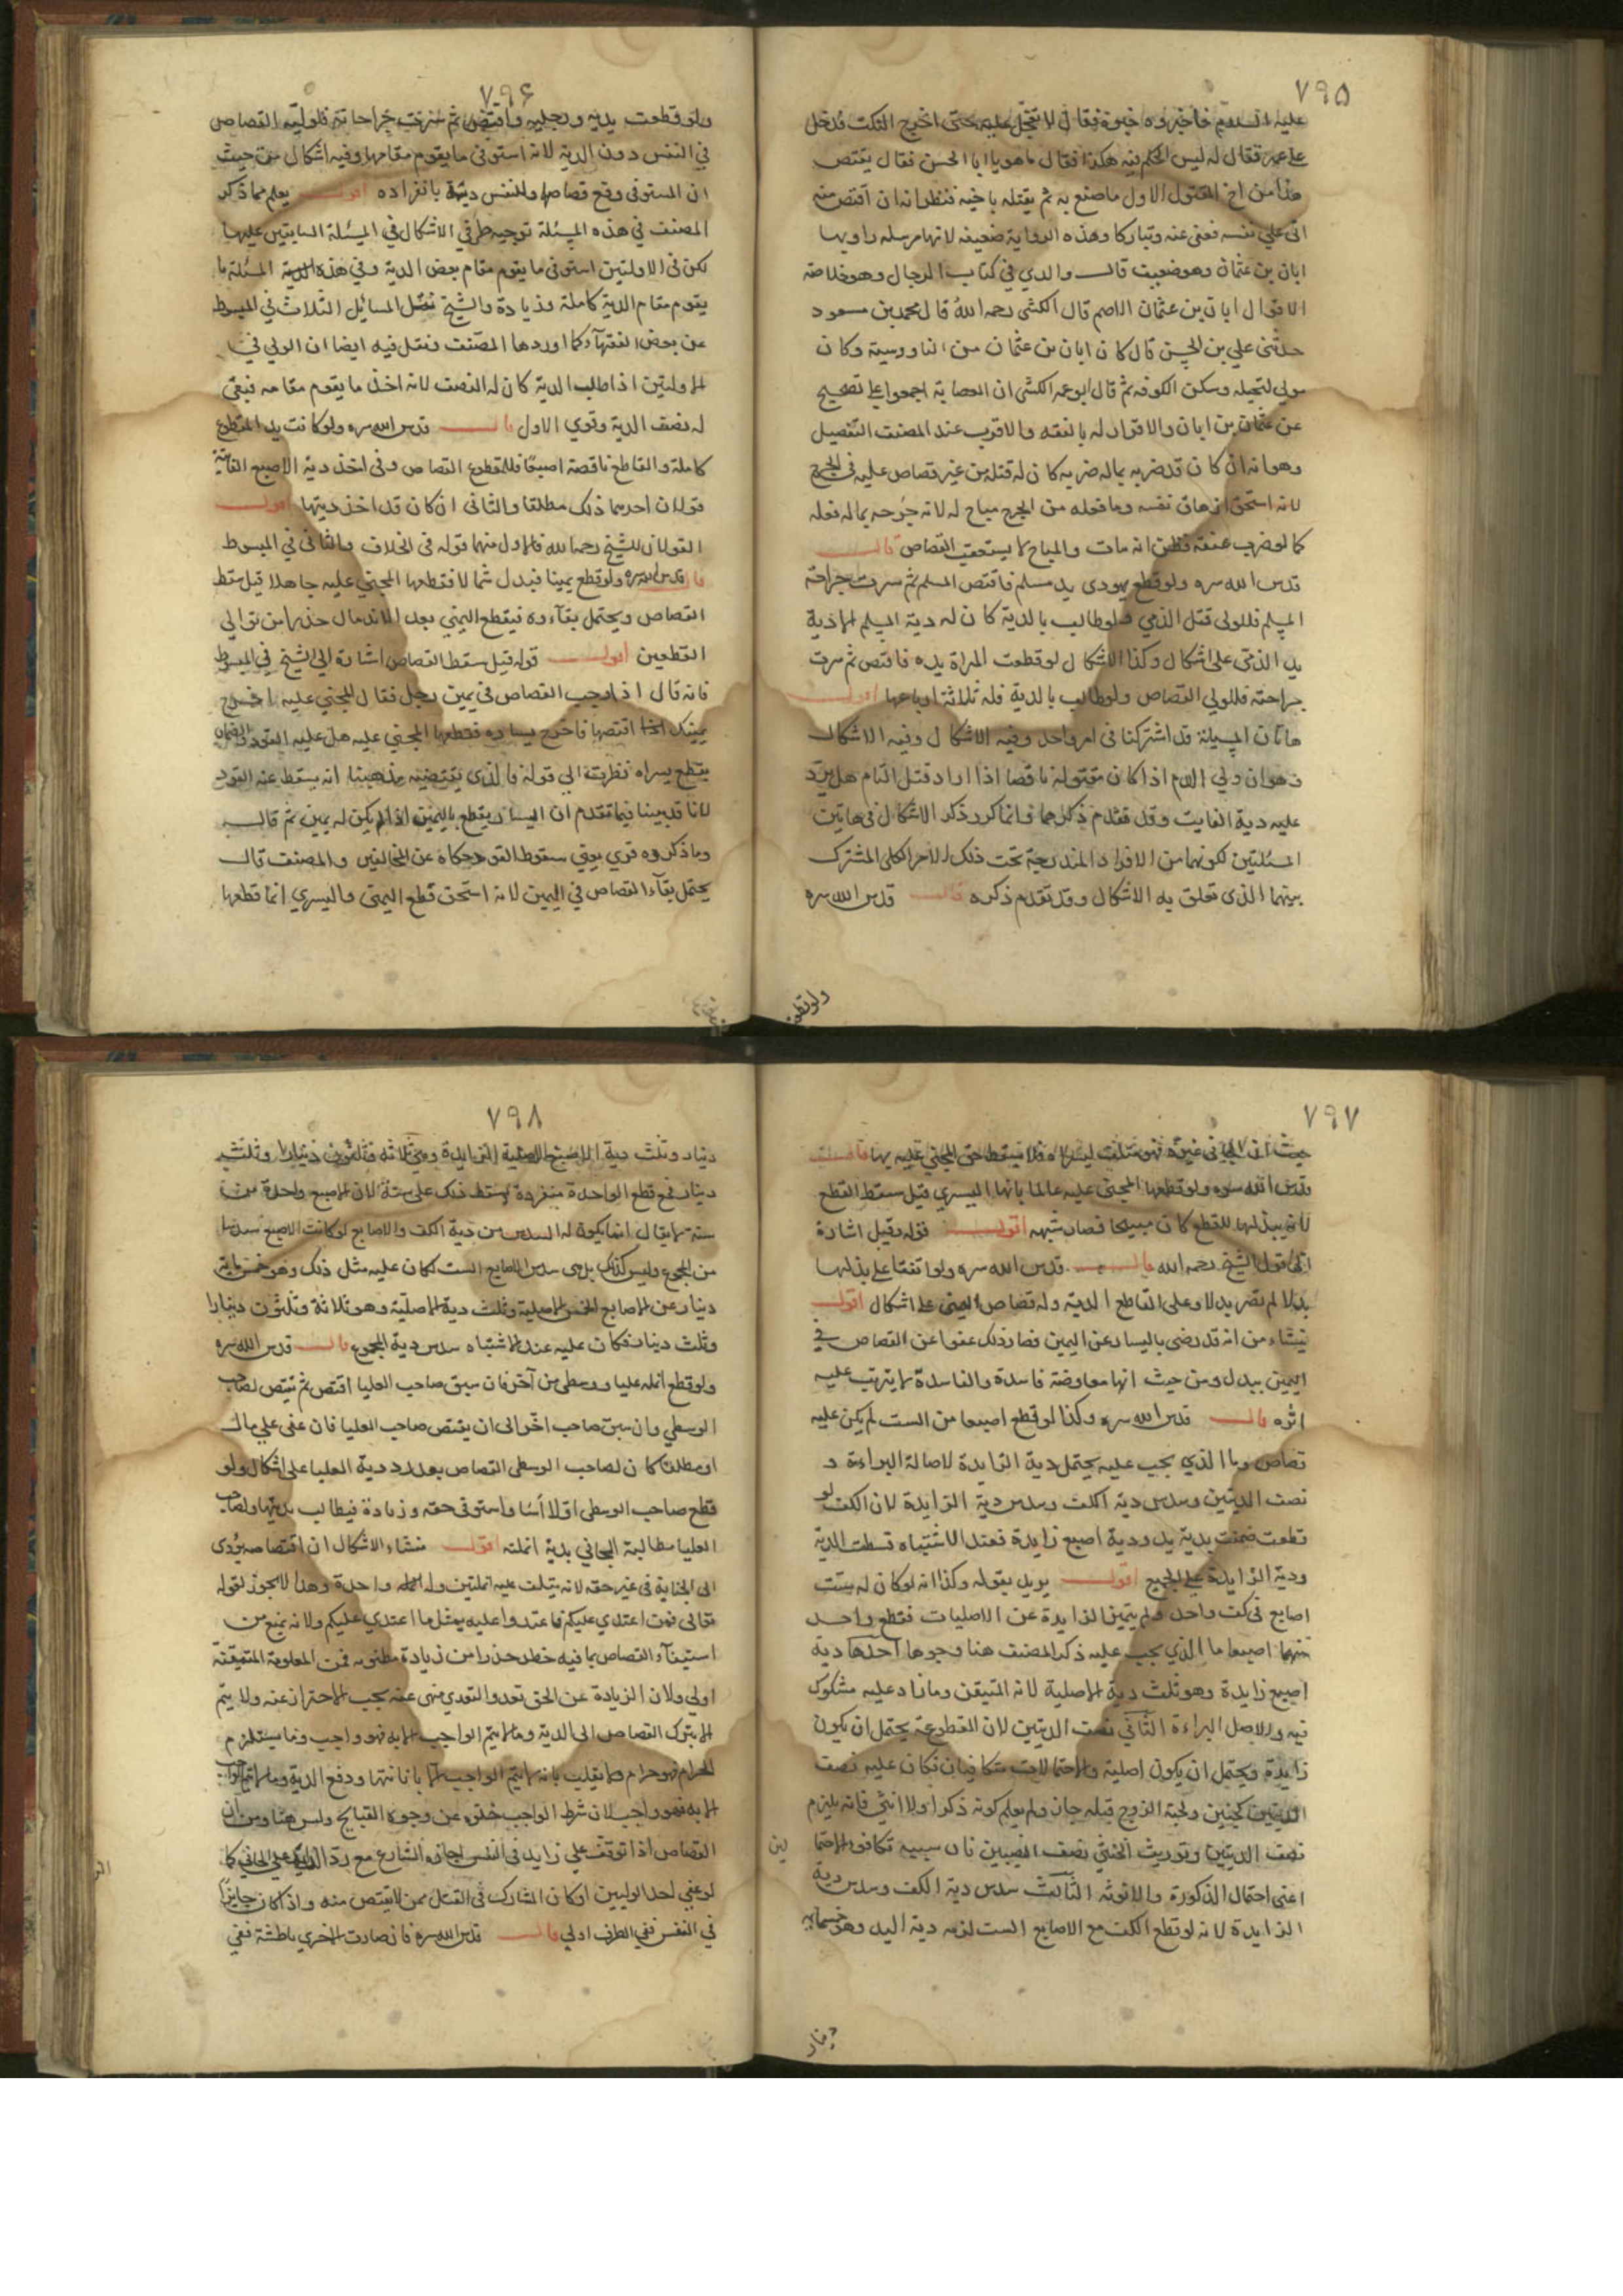 ٧٩۵
عليه السلام فاخبروه خبره فقال لا تعجل عليه حتى اخرج اليك فدخل
على عمر فقال له ليس الحكم فيه هكذا فقال ما هو يا ابا الحسن فقال يقتص
هذا من اخ المقتول الاول ما صنع به ثم يقتله باخيه فنظر انه ان اقتص منه
اتى على نفسه فعفى عنه وتتاركا وهذه الرواية ضعيفة لانها مرسلة راويها
ابان بن عثمان وهو ضعيف قال والدي في كتاب الرجال وهو خلاصة
الاقوال ابان بن عثمان الاصم قال الكشي رحمه الله قال محمد بن مسعود
حدثني علي بن الحسن قال كان ابان بن عثمان من الناووسية وكان
مولى لبجيلة وسكن الكوفة ثم قال ابو عمر الكشي ان العصابة اجمعوا على تصحيح
عن عثمان بن ابان والاقرار له بالفقه والاقرب عند المصنف التفصيل
وهو انه ان كان قد ضربه بما له ضربه كان له قتله من غير قصاص عليه في الجرح
لانه استحق ازهاق نفسه وما فعله من الجرح مباح له لانه جرحه بما له فعله
كما لو ضرب عنقه فظن انه مات والمباح لا يستعقب القصاص قال
قدس الله سره ولو قطع يهودى يد مسلم فاقتص المسلم ثم سرت جراحة
المسلم فللولى قتل الذمي ولو طالب بالدية كان له دية المسلم الا دية
يد الذمى على اشكال وكذا الاشكال لو قطعت المراة يده فاقتص ثم سرت
جراحته فللولي القصاص ولو طالب بالدية فله ثلاثة ارباعها اقول
هاتان المسئلة قد اشتركتا فى امر واحد وفيه الاشكال وفيه الاشكال
وهو ان ولي الدم اذا كان مقتوله ناقصا اذا اراد قتل التام هل يرد
عليه دية الفايت وقد تقدم ذكرهما وانما كرر ذكر الاشكال فى هاتين
المسئلتين لكونهما من الافراد المندرجة تحت ذلك الامر الكلى المشترك
بينهما الذى تعلق به الاشكال وقد تقدم ذكره قال قدس الله سره
ولو قطعت
٧٩۶
ولو قطعت يديه ورجليه واقتص ثم سرت جراحاته فلوليه القصاص
في النفس دون الدية لانه استوفى ما يقوم مقامها وفيه اشكال من حيث
ان المستوفى وقع قصاصا وللنفس دية بانفراده اقول يعلم مما ذكر
المصنف في هذه المسئلة توجيه طرفي الاشكال في المسئلة السابقتين عليها
لكن في الاولتين استوفى ما يقوم مقام بعض الدية وفي هذه المسئلة ما
يقوم مقام الدية كاملة وزيادة والشيخ نقل المسائل الثلاث في المبسوط
عن بعض الفقهآء كما اوردها المصنف ونقل فيه ايضا ان الولي في
الاولتين اذا طلب الدية كان له النصف لانه اخذ ما يقوم مقامه فبقى
له نصف الدية وقوي الاول قال قدس الله سره ولو كانت يد المقطوع
كاملة والقاطع ناقصة اصبعا فللمقطوع القصاص وفى اخذ دية الاصبع الفايتة
قولان احدهما ذلك مطلقا والثانى ان كان قد اخذ ديتها اقول
القولان للشيخ رحمه الله فالاول منهما قوله فى الخلاف والثانى في المبسوط
قال قدس الله سره ولو قطع يمينا فبذل شمالا فقطعها المجني عليه جاهلا قيل سقط
القصاص ويحتمل بقآءه فيقطع اليمني بعد الاندمال حذرا من توالي
القطعين اقول قوله قيل سقط القصاص اشارة الى الشيخ في المبسوط
فانه قال اذا وجب القصاص في يمين رجل فقال المجني عليه اخرج
يمينك اقتصها فاخرج يساره فقطعها المجني عليه هل عليه القود
بقطع يسراه نظرت الي قوله فالذى يقتضيه مذهبنا انه يسقط عنه القود
لانا قد بينا فيما تقدم ان اليسار يقطع باليمين اذا لم يكن له يمين ثم قال
وما ذكروه قوي يعني سقوط القود حكاه عن المخالفين والمصنف قال
يحتمل بقآء القصاص في اليمين لانه استحق قطع اليمنى واليسري انما قطعها
٧٩٧
حيث ان الجاني غيره فهو متلف ليسراه فلا يسقط حق المجني عليه بها قال
قدس الله سره ولو قطعها المجني عليه عالما بانها اليسري قيل سقط القطع
لان يبذلها للقطع كان مبيحا فصار شبهه اقول قوله وقيل اشارة
الى قول الشيخ رحمه الله قال قدس الله سره ولو اتفقا على بذلها
بدلا لم تصر بدلا وعلى القاطع الدية وله قصاص اليمنى على اشكال اقول
ينشاء من انه قد رضى باليسار عن اليمين فصار ذلك عفوا عن القصاص في
اليمين ببدل ومن حيث انها معاوضة فاسدة والفاسدة لا يترتب عليه
اثره قال قدس الله سره وكذا لو قطع اصبعا من الست لم يكن عليه
قصاص وما الذي يجب عليه يحتمل دية الزايدة لاصالة البراءة و
نصف الديتين وسدس دية الكف وسدس دية الزايدة لان الكف لو
قطعت ضمنت بدية يد ودية اصبع زايدة فعند الاشتباه قسطت الدية
ودية الزايدة على الجميع اقول يريد بقوله وكذا انه لو كان له ست
اصابع في كف واحد ولم يتميز الزايدة عن الاصليات فقطع واحد
منهما اصبعا ما الذي يجب عليه ذكر المصنف هنا وجوها احدها دية
اصبع زايدة وهو ثلث دية الاصلية لانه المتيقن وما زاد عليه مشكوك
فيه وللاصل البراءة الثاني نصف الديتين لان المقطوعة يحتمل ان يكون
زايدة ويحتمل ان يكون اصلية والاحتمالات متكافيان فكان عليه نصف
الديتين كجنين ولجته الزوج قبله جان ولم يعلم كونه ذكرا اولا انثى فانه يلزم
نصف الديتين وتوريث الخنثى نصف النصيبين فان سببه تكافو الاحتما
لين
اعنى احتمال الذكورة والانوثة الثالث سدس دية الكف وسدس دية
الزايدة لانه لو قطع الكف مع الاصابع الست لزمه دية اليد وهو خمسمايه
دينار
٧٩٨
دينار وثلث دية الاصبع الاصلية الزايدة وهى ثلاثة وثلثون دينارا وثلث
دينار فمع قطع الواحدة منفردة يسقط ذلك على ستة لان الاصبع واحدة من
ستة لا يقال انما يكون له السدس من دية الكف والاصابع لو كانت الاصبع سدسا
من المجموع وليس كذلك بل هى سدس الاصابع الست لكان عليه مثل ذلك وهو خمسماية
دينار عن الاصابع الخمس الاصلية وثلث دية الاصلية وهو ثلاثة وثلثون دينارا
وثلث دينار فكان عليه عند الاشتباه سدس دية المجموع قال قدس الله سره
ولو قطع انملة عليا ووسطى من آخر فان سبق صاحب العليا اقتص ثم يقتص لصاحب
الوسطي وان سبق صاحب اخر الى ان يقتص صاحب العليا فان عفى على مال
او مطلقا كان لصاحب الوسطى القصاص بعد رد دية العليا على اشكال ولو
قطع صاحب الوسطى اولا اسا واستوفى حقه وزيادة فيطالب بديتها ولصاحب
العليا مطالبة الجانى بدية انملته اقول منشاء الاشكال ان اقتصاصه يؤدى
الى الجناية فى غير حقه لانه يتلف عليه انملتين وله انملة واحدة وهذا لا يجوز لقوله
تعالى فمن اعتدي عليكم فاعتدوا عليه بمثل ما اعتدي عليكم ولانه يمنع من
استيفآء القصاص بما فيه خطر حذرا من زيادة مظنونه فمن المعلومة المتيقنة
اولي ولان الزيادة عن الحق تعد والتعدي منهى عنه يجب الاحتراز عنه ولا يتم
الا بترك القصاص الى الدية وما لا يتم الواجب الا به فهو واجب وما يستلزم
الحرام فهو حرام
الا به فهو واجب لان شرط الواجب خلوه عن وجوه القبايح وليس هنا ومن ان
القصاص اذا توقف على زايد فى النفس اجازه الشارع مع رد الزايد على الجانى كما
لو عفي احد الوليين او كان المشارك في القتل ممن لا يقتص منه واذ كان جايزا
في النفس ففي الطرف اولي قال قدس الله سره فان صادت الاخري باطشة ففي